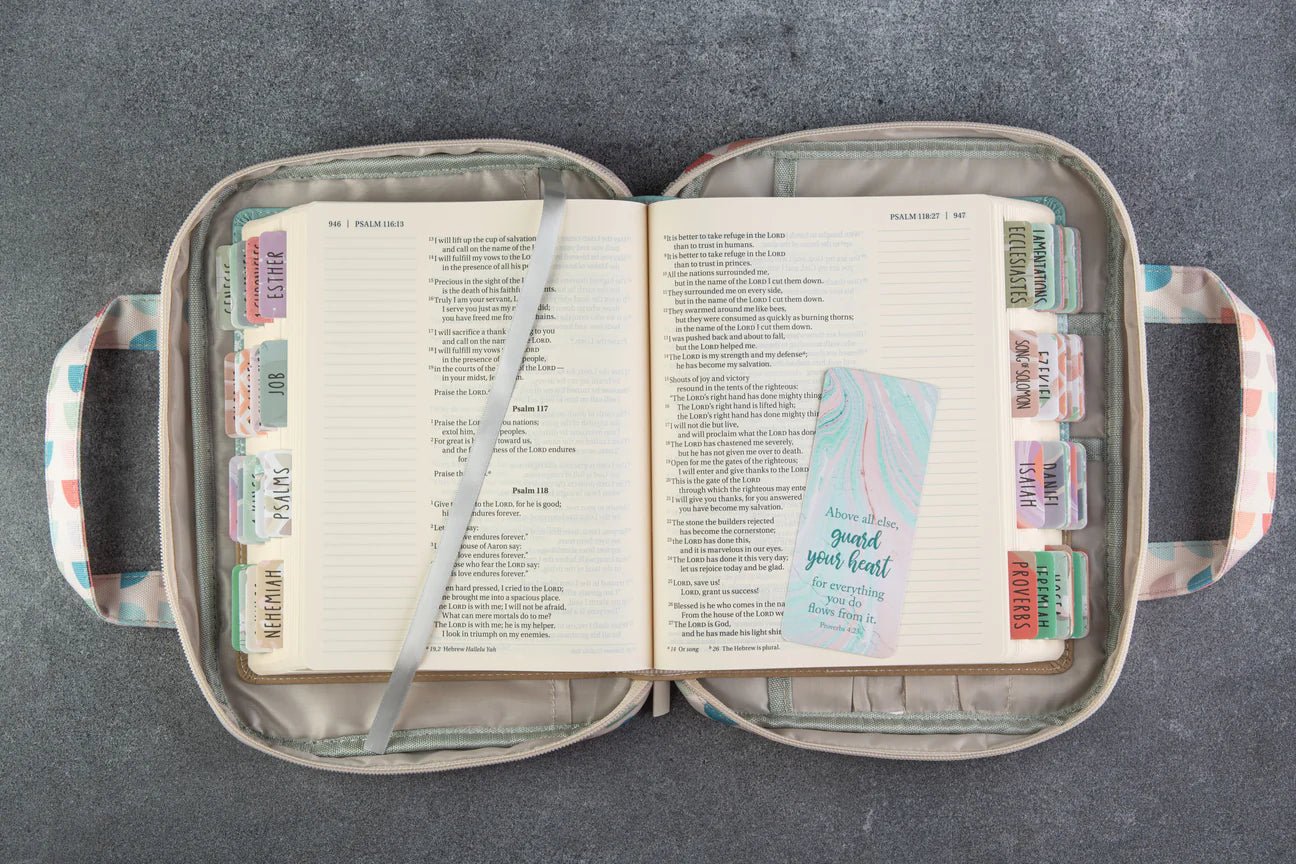 946 | PSALM 116:13
13 I will lift up the cup of salvation
and call on the name of the
14 I will fulfill my vows to the
in the presence of all his
15 Precious in the sight of the
is the death of his faithful
16 Truly I am your servant,
I serve you just as my
you have freed me from
17 I will sacrifice a thank to you
and call on the name of the LORD.
18 I will fulfill my vows LORD
in the presence people,
19 in the courts of the of the LORD —
in your midst,
Praise the LORD.
Psalm 117
1 Praise the nations;
extol him, peoples.
2 For great is toward us,
and the of the LORD endures
Praise the
Psalm 118
1 Give to the LORD, for he is good;
endures forever.
2 Let say:
endures forever."
3 house of Aaron say:
love endures forever."
who fear the LORD say:
love endures forever."
hard pressed, I cried to the LORD;
he brought me into a spacious place.
The LORD is with me; I will not be afraid.
What can mere mortals do to me?
The LORD is with me; he is my helper.
I look in triumph on my enemies.
a 19,2 Hebrew Hallelu Yah
PSALM 118:27 | 947
8 It is better to take refuge in the LORD
than to trust in humans.
9 It is better to take refuge in the LORD
than to trust in princes.
10 All the nations surrounded me,
but in the name of the LORD I cut them down.
11 They surrounded me on every side,
but in the name of the LORD I cut them down.
12 They swarmed around me like bees,
but they were consumed as quickly as burning thorns;
in the name of the LORD I cut them down.
13 I was pushed back and about to fall,
but the LORD helped me.
14 The LORD is my strength and my defense a;
he has become my salvation.
15 Shouts of joy and victory
resound in the tents of the righteous:
"The LORD's right hand has done mighty
16 The LORD's right hand is lifted high;
the LORD's right hand has done mighty
17 I will not die but live,
and will proclaim what the LORD has done
18 The LORD has chastened me severely,
but he has not given me over to death.
19 Open for me the gates of the righteous;
I will enter and give thanks to the LORD
20 This is the gate of the LORD
through which the righteous may enter
21 I will give you thanks, for you answered
you have become my salvation.
22 The stone the builders rejected
has become the cornerstone;
23 the LORD has done this,
and it is marvelous in our eyes.
24 The LORD has done it this very day;
let us rejoice today and be glad.
25 LORD, save us!
LORD, grant us success!
26 Blessed is he who comes in the
From the house of the LORD we
27 The LORD is God,
and he has made his light
a 14 Or song b 26 The Hebrew is plural.
Above all else,
guard
your heart
for everything
you do
flows from it.
Proverbs 4:23
GENESIS
ESTHER
JOB
PSALMS
NEHEMIAH
ECCLESIASTES
LAMENTATIONS
SONG OF SOLOMON
EZEKIEL
ISAIAH
DANIEL
PROVERBS
JEREMIAH
HOSEA